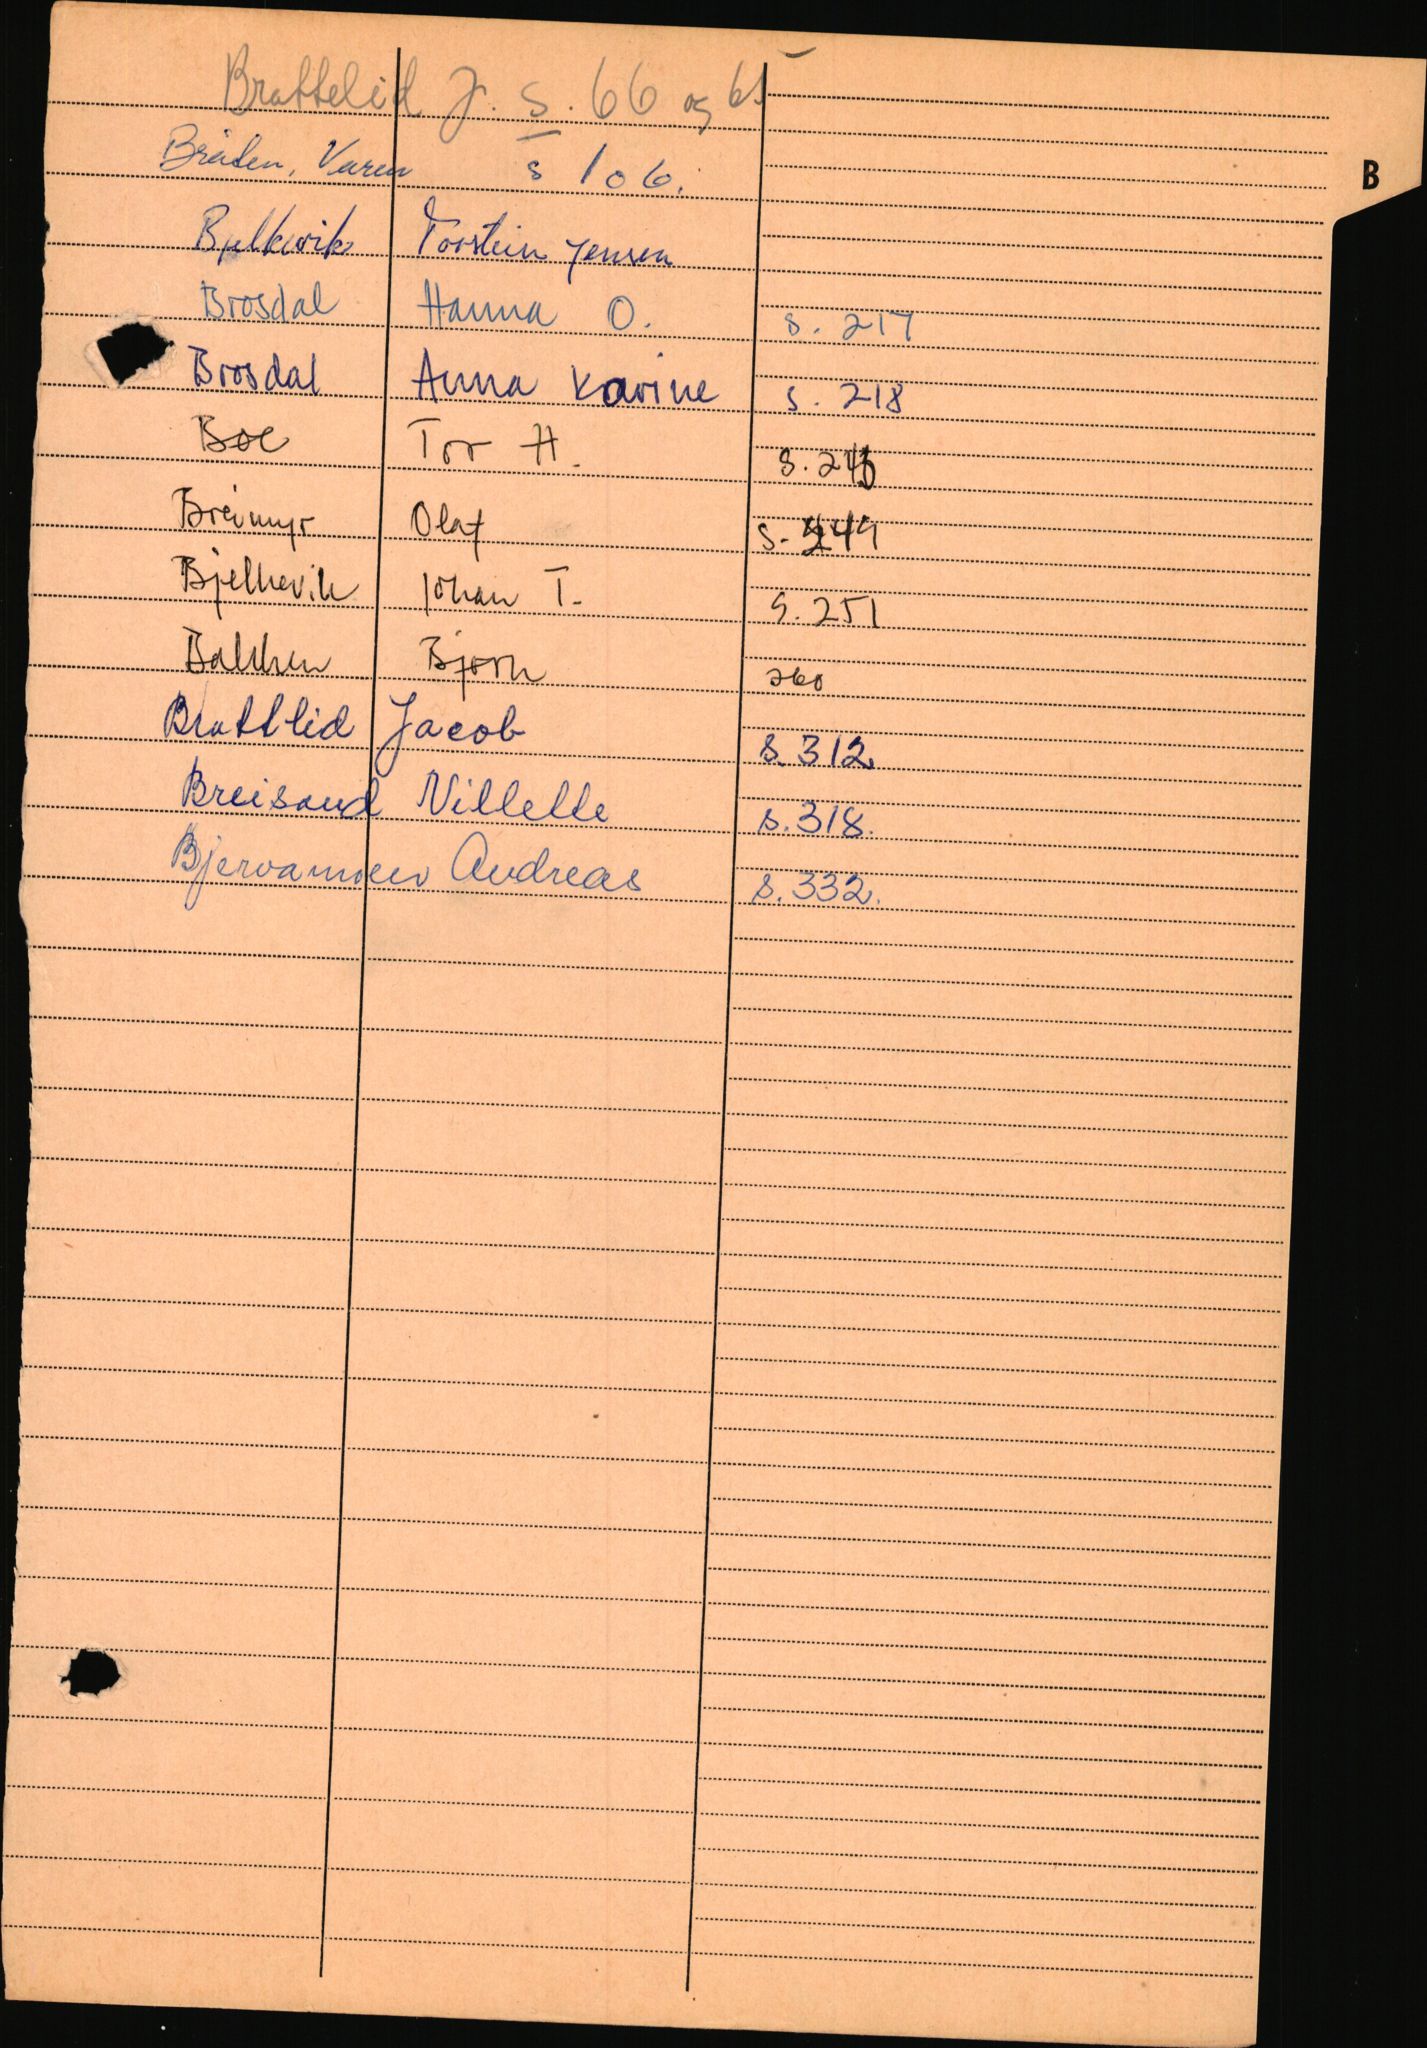 Brattelid J. s. 66 og 65
B
Bråten, Varen s 106.
Bjelkevik Torstein Jensen
Brosdal Hanna O. s. 217
Brosdal Anna Karine s. 218
Boe Tor H. s.
Breimyr Olaf s. 249
Bjelkevik Johan T. s. 251
Balchen Bjørn 260
Brattlid Jacob s. 312
Breisand Villelle s. 318.
Bjervamoen Andreas s. 332.